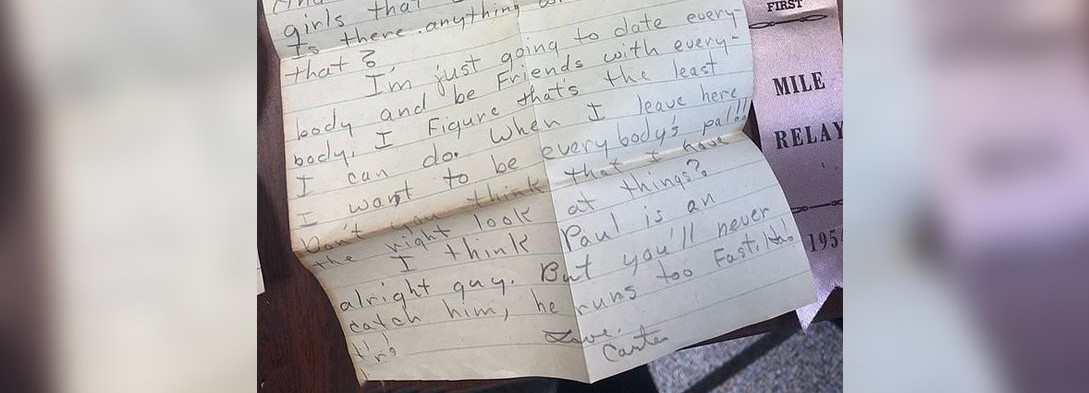 girls that
Is there anything
that?
I'm just going to date every-
body and be Friends with every-
body, I Figure that's the least
I can do. When I leave here
I want to be everybody's pal!!
Don't you think that I have
the right look at things?
I think Paul is an
alright guy. But you'll never
catch him, he runs too Fast. Ha.
Love,
Carter
FIRST
MILE
RELAY
1954